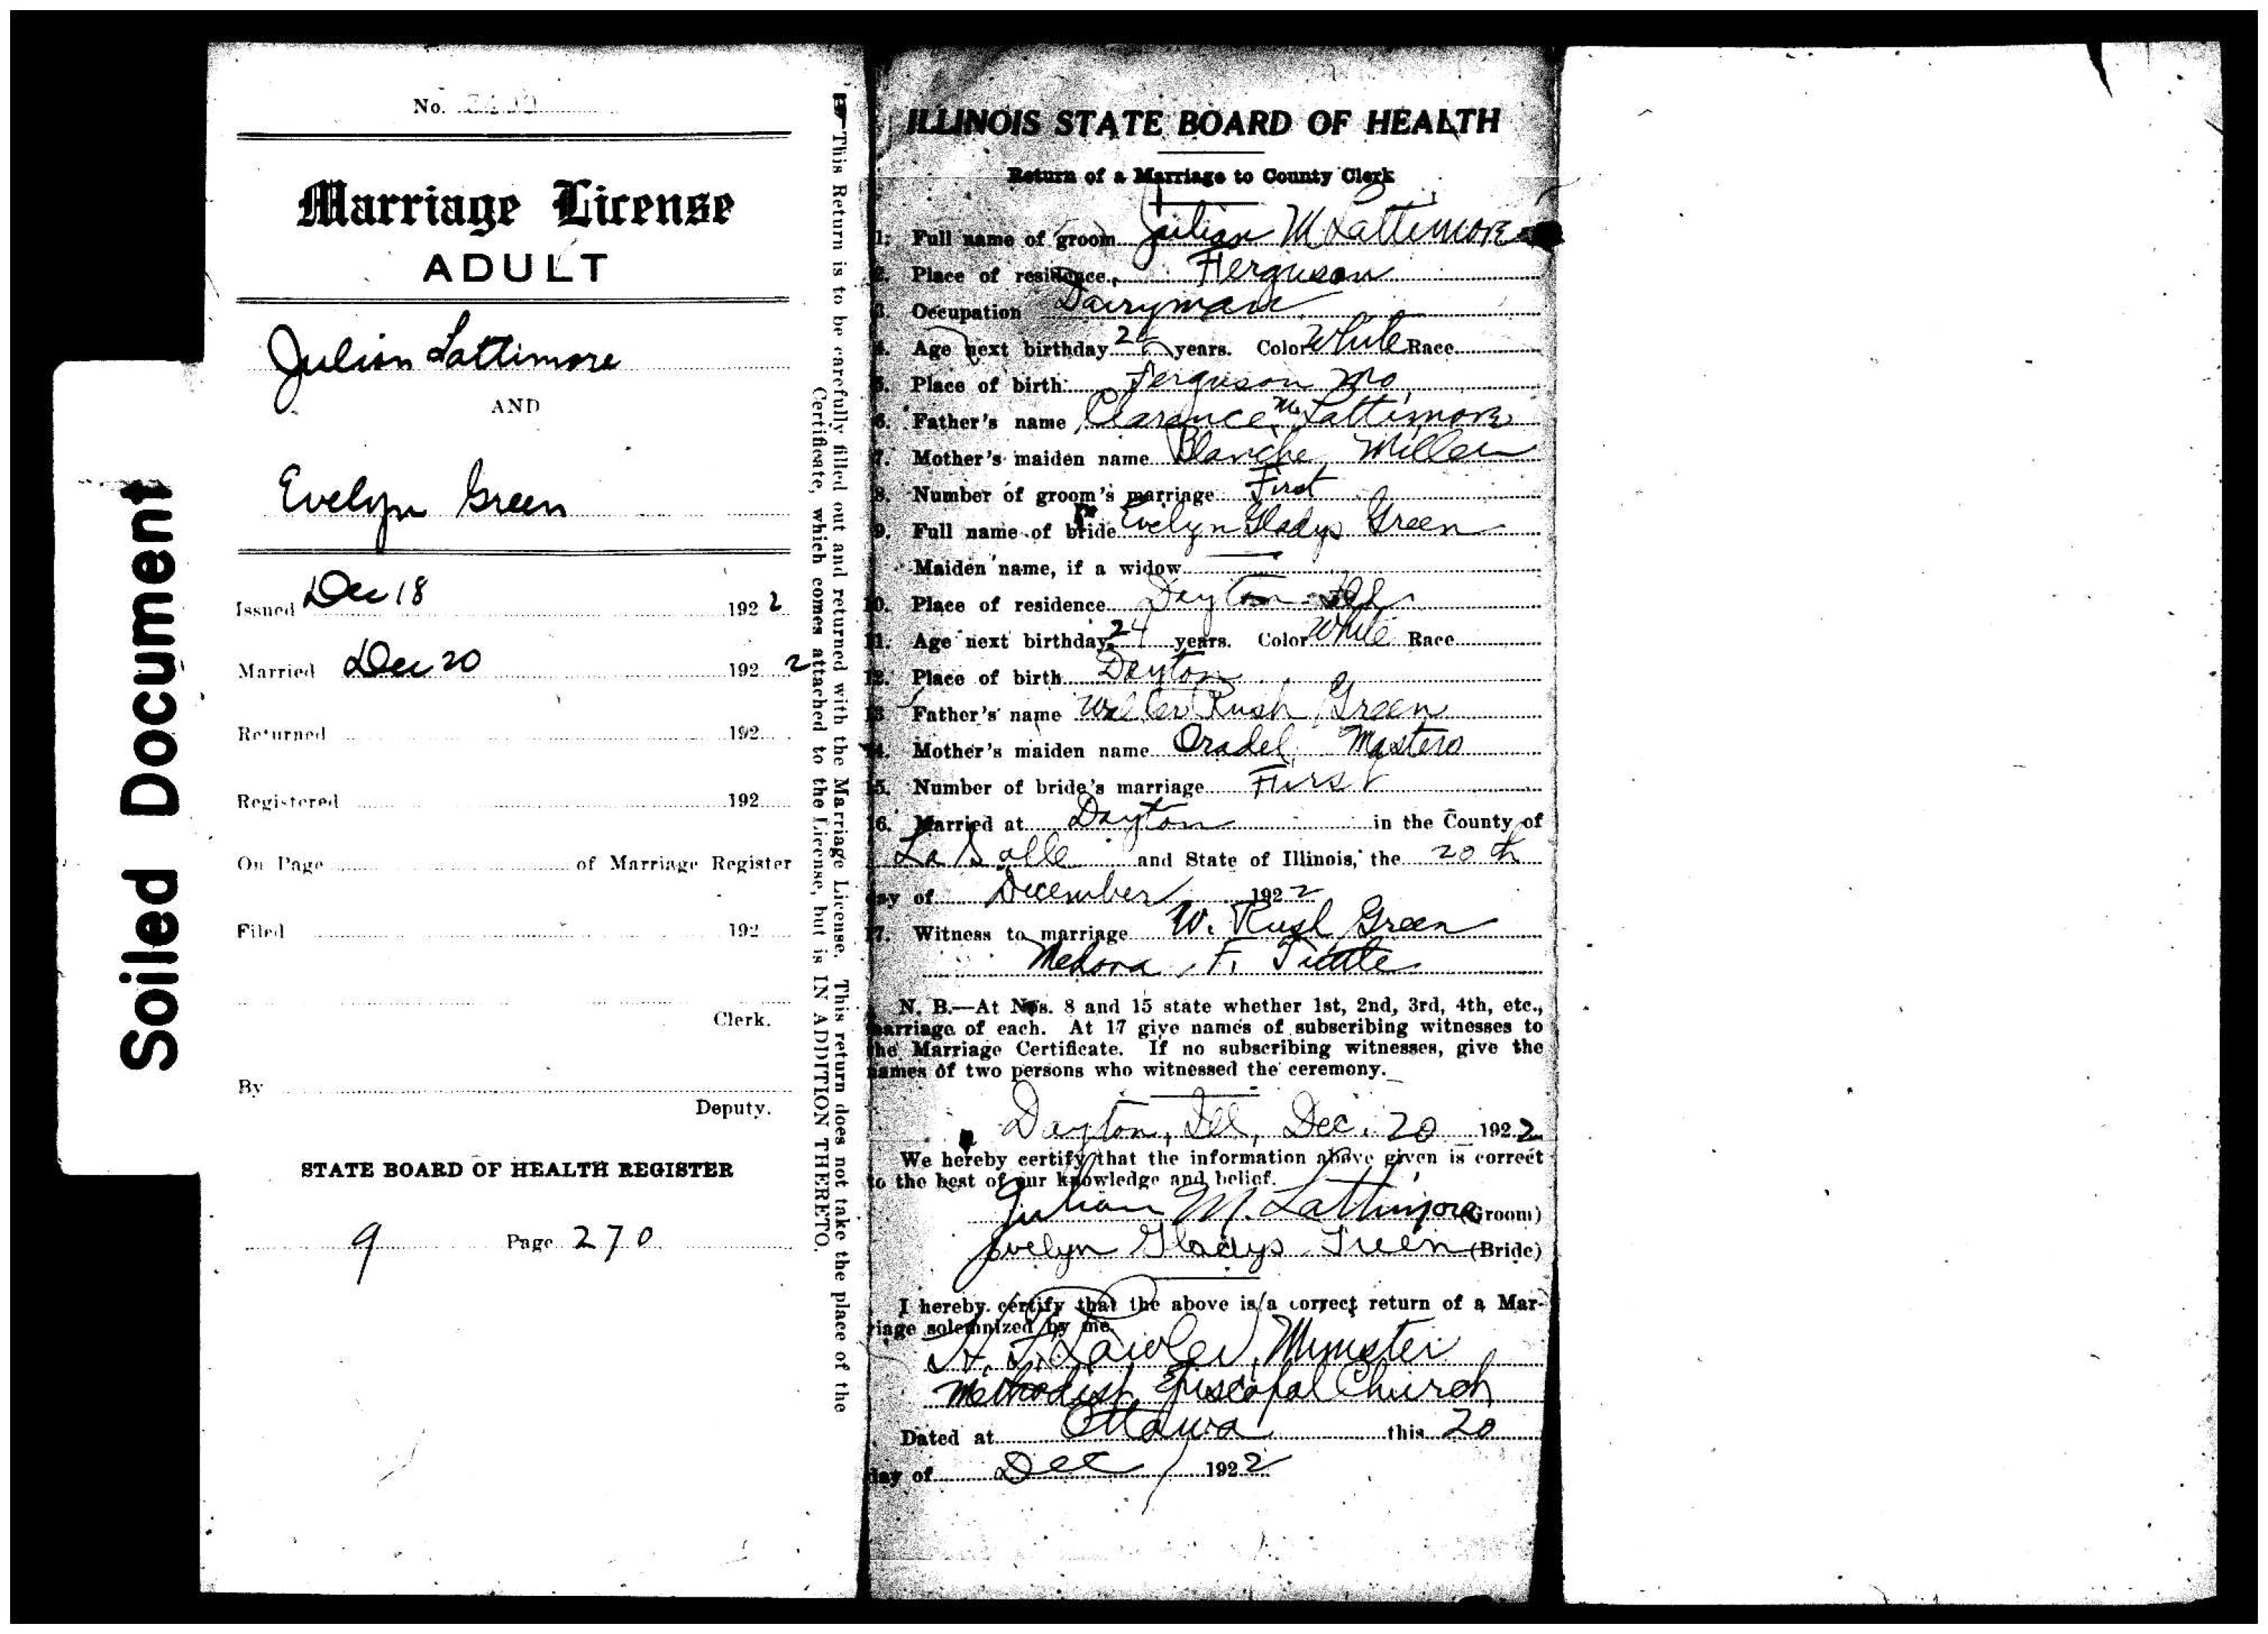 Soiled Document
No.
Marriage License
ADULT
Julian Lattimore
AND
Evelyn Green
Issued Dec 18 1922
Married Dec 20 1922
Returned 192
Registered 192
On Page of Marriage Register
Filed 192
Clerk.
By
Deputy.
STATE BOARD OF HEALTH REGISTER
9 Page 270
This Return is to be carefully filled out and returned with the Marriage License. This return does not take the place of the
Certificate, which comes attached to the License, but is IN ADDITION THERETO.
ILLINOIS STATE BOARD OF HEALTH
Return of a Marriage to County Clerk
1. Full name of groom Julian M Lattimore
2. Place of residence Ferguson
3. Occupation Dairyman
4. Age next birthday years. Color White Race
5. Place of birth Ferguson Mo
6. Father's name Clarence M. Lattimore
7. Mother's maiden name Blanche Miller
8. Number of groom's marriage First
9. Full name of bride Evelyn Gladys Green
Maiden name, if a widow
10. Place of residence Dayton Ill
11. Age next birthday 24 years. Color White Race
12. Place of birth Dayton
13. Father's name Walter Rush Green
14. Mother's maiden name Oradel Masters
15. Number of bride's marriage First
16. Married at Dayton in the County of
La Salle and State of Illinois, the 20th
day of December 1922
17. Witness to marriage W. Rush Green
Medora F.
N. B.—At Nos. 8 and 15 state whether 1st, 2nd, 3rd, 4th, etc.,
marriage of each. At 17 give names of subscribing witnesses to
the Marriage Certificate. If no subscribing witnesses, give the
names of two persons who witnessed the ceremony.
Dayton, Ill, Dec. 20 1922
We hereby certify that the information above given is correct
to the best of our knowledge and belief.
Julian M. Lattimore (Groom)
Evelyn Gladys Green (Bride)
I hereby certify that the above is a correct return of a Mar-
riage solemnized by me.
Minister
Methodist Episcopal Church
Dated at Ottawa this 20
day of Dec 1922